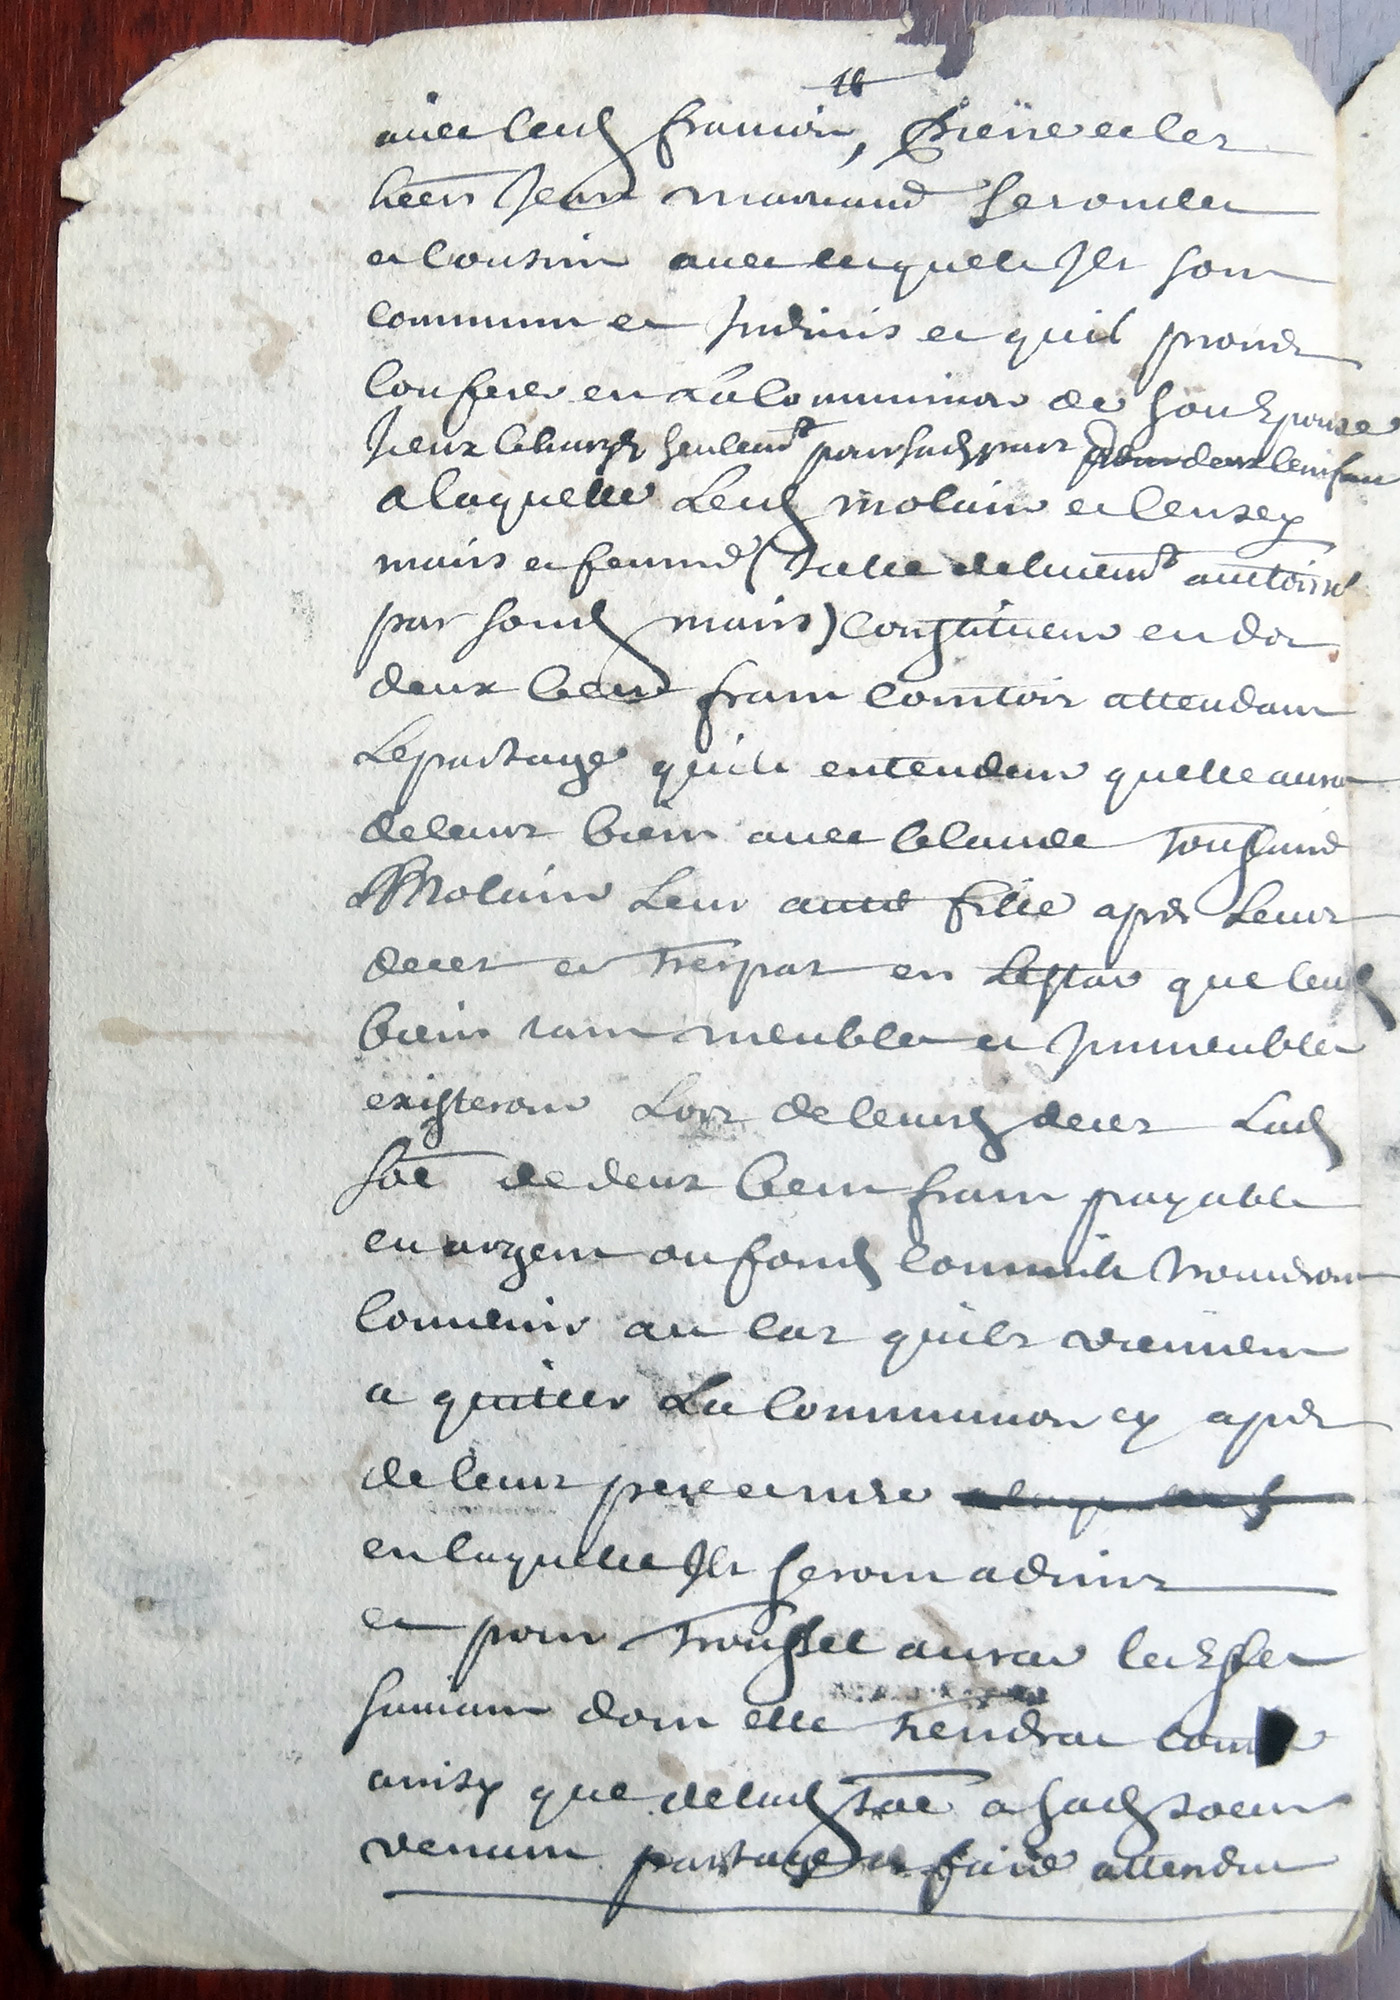 avec leurd francois, Pierre et les
heers Jean marmand ses oncles
et cousin avec lesquels Ils sont
commun et Indivis et quil prendr
confere en la communion de son Epouse
Iceux charge seulemt pour
a laquelle Lesd molain et censey
maris et femme (Icelle deluement auctorise
par sond maris) constituent en dot
deux cent franc comtois attendant
Le partage quils entendent quelle aura
de leurs bien avec claude
Molain Leur autre fille apres Leurs
deces et trespas en Lestat que leurd
biens tant meubles et Immeubles
existeront Lors de leursd deces Lad
soe de deux cent franc payable
en argent ou fond comme ils trouveront
convenir au cas quils viennent
a quitter La communion cy apres
de leurs pere et mere
en laquelle Ils seront admis
et pour troussel aurat les Effet
suivant dont elle tiendrat compte
ainsy que delad soe a sad soeur
venant partage a faire attendu